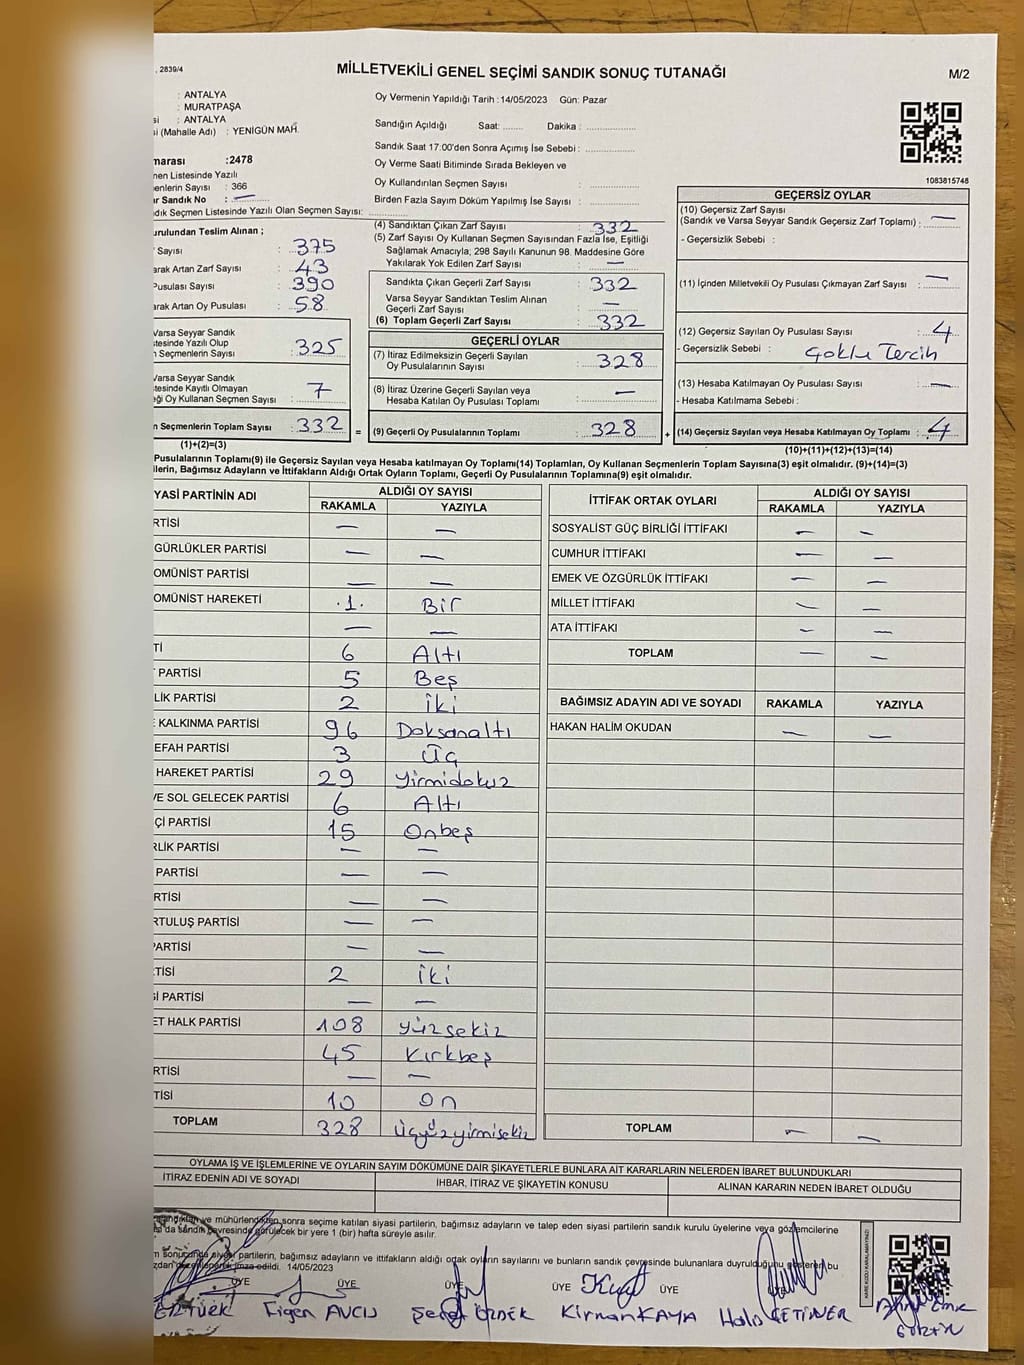 , 2839/4
MİLLETVEKİLİ GENEL SEÇİMİ SANDIK SONUÇ TUTANAĞI
M/2
: ANTALYA
: MURATPAŞA
: ANTALYA
(Mahalle Adı) : YENİGÜN MAH.
Oy Vermenin Yapıldığı Tarih : 14/05/2023 Gün: Pazar
Sandığın Açıldığı Saat: ........ Dakika : ....................
Sandık Saat 17:00'den Sonra Açımış İse Sebebi : ....................
Oy Verme Saati Bitiminde Sırada Bekleyen ve
Oy Kullandırılan Seçmen Sayısı : ....................
Birden Fazla Sayım Döküm Yapılmış İse Sayısı : ....................
1083815748
marası :2478
nen Listesinde Yazılı
enlerin Sayısı : 366
ar Sandık No : —
dık Seçmen Listesinde Yazılı Olan Seçmen Sayısı: ..........
urulundan Teslim Alınan ;
Sayısı : 375
arak Artan Zarf Sayısı : 43
Pusulası Sayısı : 390
arak Artan Oy Pusulası : 58
Varsa Seyyar Sandık
tesinde Yazılı Olup
n Seçmenlerin Sayısı : 325
Varsa Seyyar Sandık
tesinde Kayıtlı Olmayan
eği Oy Kullanan Seçmen Sayısı : 7
n Seçmenlerin Toplam Sayısı : 332 =
(1)+(2)=(3)
(4) Sandıktan Çıkan Zarf Sayısı : 332
(5) Zarf Sayısı Oy Kullanan Seçmen Sayısından Fazla İse, Eşitliği
Sağlamak Amacıyla; 298 Sayılı Kanunun 98. Maddesine Göre
Yakılarak Yok Edilen Zarf Sayısı : —
Sandıkta Çıkan Geçerli Zarf Sayısı : 332
Varsa Seyyar Sandıktan Teslim Alınan
Geçerli Zarf Sayısı : —
(6) Toplam Geçerli Zarf Sayısı : 332
GEÇERLİ OYLAR
(7) İtiraz Edilmeksizin Geçerli Sayılan
Oy Pusulalarının Sayısı : 328
(8) İtiraz Üzerine Geçerli Sayılan veya
Hesaba Katılan Oy Pusulası Toplamı : —
(9) Geçerli Oy Pusulalarının Toplamı : 328 +
GEÇERSİZ OYLAR
(10) Geçersiz Zarf Sayısı
(Sandık ve Varsa Seyyar Sandık Geçersiz Zarf Toplamı) : —
- Geçersizlik Sebebi :
(11) İçinden Milletvekili Oy Pusulası Çıkmayan Zarf Sayısı : —
(12) Geçersiz Sayılan Oy Pusulası Sayısı : 4
- Geçersizlik Sebebi : Çoklu Tercih
(13) Hesaba Katılmayan Oy Pusulası Sayısı : —
- Hesaba Katılmama Sebebi :
(14) Geçersiz Sayılan veya Hesaba Katılmayan Oy Toplamı : 4
(10)+(11)+(12)+(13)=(14)
Pusulalarının Toplamı(9) ile Geçersiz Sayılan veya Hesaba katılmayan Oy Toplamı(14) Toplamları, Oy Kullanan Seçmenlerin Toplam Sayısına(3) eşit olmalıdır. (9)+(14)=(3)
ilerin, Bağımsız Adayların ve İttifakların Aldığı Ortak Oyların Toplamı, Geçerli Oy Pusulalarının Toplamına(9) eşit olmalıdır.
YASİ PARTİNİN ADI ALDIĞI OY SAYISI
RAKAMLA YAZIYLA
RTİSİ — —
GÜRLÜKLER PARTİSİ — —
OMÜNİST PARTİSİ — —
OMÜNİST HAREKETİ .1. Bir
— —
Tİ 6 Altı
PARTİSİ 5 Beş
LİK PARTİSİ 2 İki
KALKINMA PARTİSİ 96 Doksanaltı
EFAH PARTİSİ 3 Üç
HAREKET PARTİSİ 29 Yirmidokuz
VE SOL GELECEK PARTİSİ 6 Altı
Çİ PARTİSİ 15 Onbeş
RLİK PARTİSİ — —
PARTİSİ — —
RTİSİ — —
RTULUŞ PARTİSİ — —
PARTİSİ — —
TİSİ 2 İki
Sİ PARTİSİ — —
ET HALK PARTİSİ 108 Yüzsekiz
45 Kırkbeş
RTİSİ — —
TİSİ 10 On
TOPLAM 328 Üçyüzyirmisekiz
İTTİFAK ORTAK OYLARI ALDIĞI OY SAYISI
RAKAMLA YAZIYLA
SOSYALİST GÜÇ BİRLİĞİ İTTİFAKI — —
CUMHUR İTTİFAKI — —
EMEK VE ÖZGÜRLÜK İTTİFAKI — —
MİLLET İTTİFAKI — —
ATA İTTİFAKI — —
TOPLAM — —
BAĞIMSIZ ADAYIN ADI VE SOYADI RAKAMLA YAZIYLA
HAKAN HALİM OKUDAN — —
TOPLAM — —
OYLAMA İŞ VE İŞLEMLERİNE VE OYLARIN SAYIM DÖKÜMÜNE DAİR ŞİKAYETLERLE BUNLARA AİT KARARLARIN NELERDEN İBARET BULUNDUKLARI
İTİRAZ EDENİN ADI VE SOYADI İHBAR, İTİRAZ VE ŞİKAYETİN KONUSU ALINAN KARARIN NEDEN İBARET OLDUĞU
ve mühürlendikten sonra seçime katılan siyasi partilerin, bağımsız adayların ve talep eden siyasi partilerin sandık kurulu üyelerine veya gözlemcilerine
da sandık çevresinde görülecek bir yere 1 (bir) hafta süreyle asılır.
sonucunda siyasi partilerin, bağımsız adayların ve ittifakların aldığı ortak oyların sayılarını ve bunların sandık çevresinde bulunanlara duyrulduğunu gösteren bu
imza edildi. 14/05/2023
ÜYE ÜYE ÜYE ÜYE ÜYE
ERTÜRK Figen AVCI KirmanKAYA Halis ÇETİNER